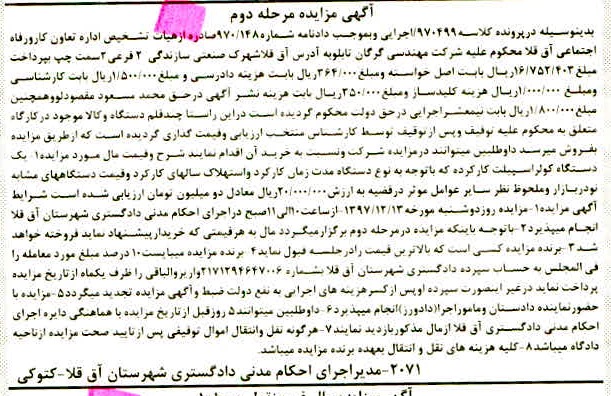 آگهی مزایده مرحله دوم
بدینوسیله درپرونده کلاسه ۹۷۰۴۹۹/اجرایی وبموجب دادنامه شماره۹۷۰/۱۴۸صادره ازهیات تشخیص اداره تعاون کارورفاه
اجتماعی آق قلا محکوم علیه شرکت مهندسی گرگان تابلوبه آدرس آق قلاشهرک صنعتی سازندگی ۲ فرعی۳سمت چپ بپرداخت
مبلغ۱۶/۷۵۲/۴۰۳ریال بابت اصل خواسته ومبلغ۳۶۴/۰۰۰ریال بابت هزینه دادرسی و مبلغ۱/۵۰۰/۰۰۰ریال بابت کارشناسی
ومبلغ ۱/۰۰۰/۰۰۰ریال هزینه کلیدساز ومبلغ۲۵۰/۰۰۰ریال بابت هزینه نشر آگهی درحق محمد مسعود مقصودلووهمچنین
مبلغ۱/۸۰۰/۰۰۰ریال بابت نیمعشراجرایی درحق دولت محکوم گردیده است دراین راستا چندقلم دستگاه وکالا موجود درکارگاه
متعلق به محکوم علیه توقیف وپس ازتوقیف توسط کارشناس منتخب ارزیابی وقیمت گذاری گردیده است که ازطریق مزایده
بفروش میرسد داوطلبین میتوانند درمزایده شرکت ونسبت به خرید آن اقدام نمایند شرح وقیمت مال مورد مزایده۱ یک
دستگاه کولراسپیلت کارکرده که باتوجه به نوع دستگاه مدت زمان کارکرد واستهلاک سالهای کارکرد وقیمت دستگاههای مشابه
نودربازار وملحوظ نظر سایر عوامل موثر درقضیه به ارزش۲۰/۰۰۰/۰۰۰ریال معادل دو میلیون تومان ارزیابی شده است شرایط
آگهی مزایده۱-مزایده روزدوشنبه مورخه۱۳۹۷/۱۲/۱۳-ازساعت۱۰الی۱۱صبح دراجرای احکام مدنی دادگستری شهرستان آق قلا
انجام میپذیرد۲-باتوجه باینکه مزایده درمرحله دوم برگزارمیگردد مال به هرقیمتی که خریدارپیشنهاد نماید فروخته خواهد
شد۳-برنده مزایده کسی است که بالاترین قیمت رادرجلسه قبول نماید۴-برنده مزایده میبایست۱۰درصد مبلغ مورد معامله را
فی المجلس به حساب سپرده دادگستری شهرستان آق قلا بشماره ۲۱۷۱۲۹۴۶۴۷۰۰۶واریزوالباقی را ظرف یکماه ازتاریخ مزایده
پرداخت نماید درغیر اینصورت سپرده اوپس ازکسرهزینه های اجرایی به نفع دولت ضبط وآگهی مزایده تجدید میگردد۵-مزایده با
حضورنماینده دادستان ومامور اجرا(دادورز)انجام میپذیرد۶-داوطلبین میتوانند۵ روزقبل ازتاریخ مزایده با هماهنگی دایره اجرای
احکام مدنی دادگستری آق قلا ازمال مذکوربازدید نمایند۷-هرگونه نقل وانتقال اموال توقیفی پس ازتایید صحت مزایده ازناحیه
دادگاه میباشد۸-کلیه هزینه های نقل و انتقال بعهده برنده مزایده میباشد.
۲۰۷۱-مدیراجرای احکام مدنی دادگستری شهرستان آق قلا-کتوکی